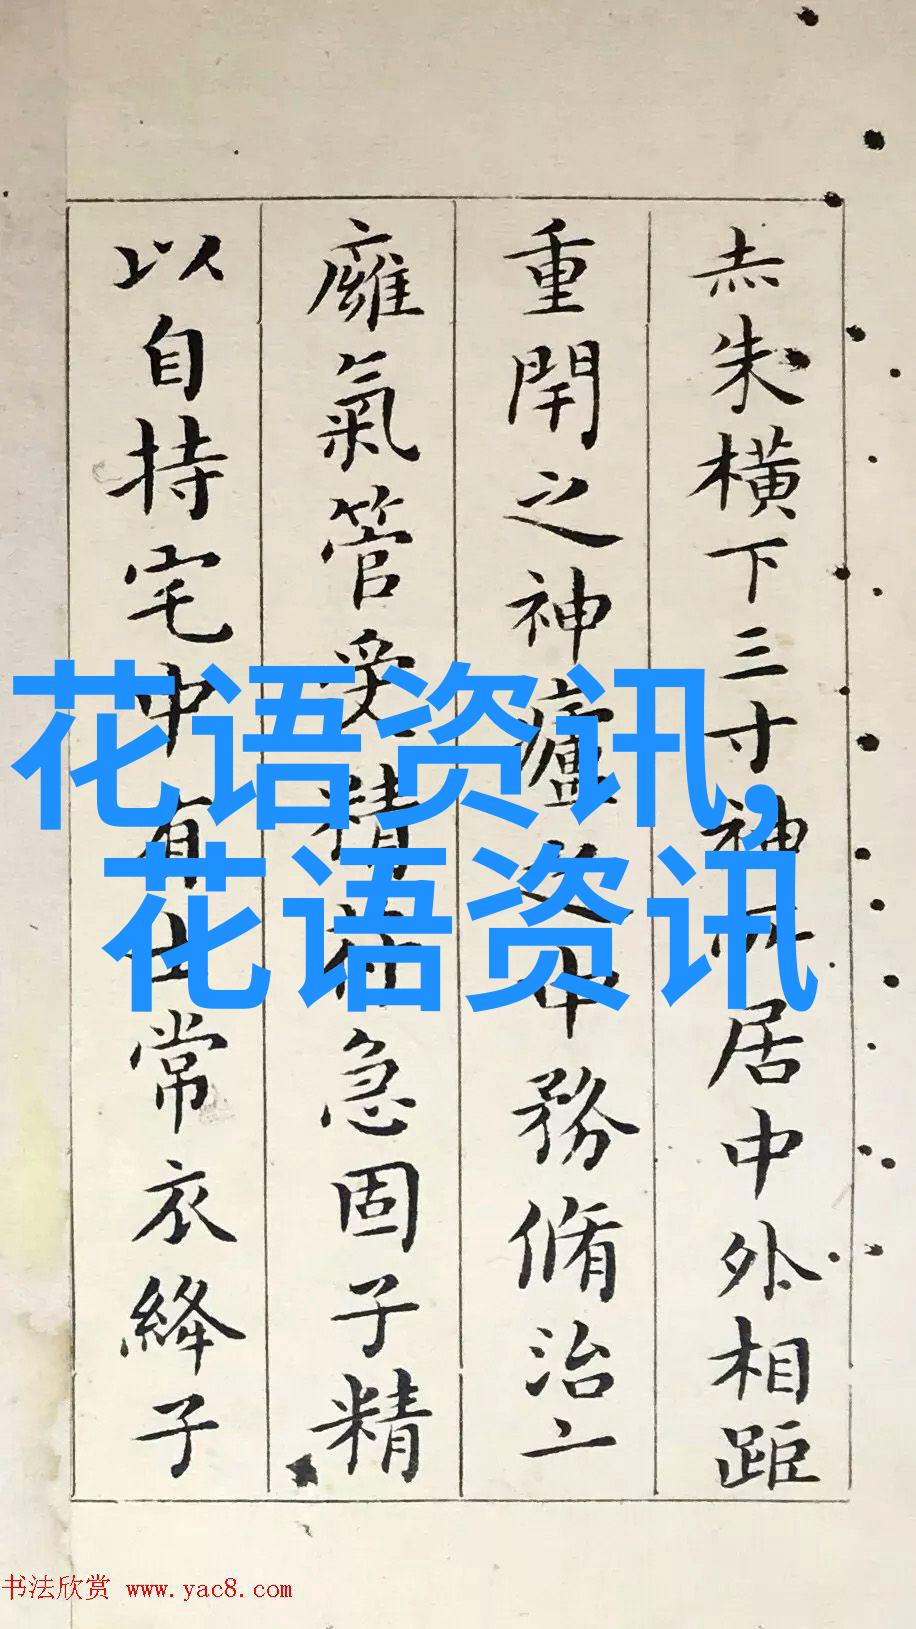 赤朱橫下三寸神所居中外相距
重閈之神廬之中務脩治二
廱氣管受精符急固子精
以自持宅中有士常衣絳子
花语资讯,
花语资讯
书法欣赏 www.yac8.com